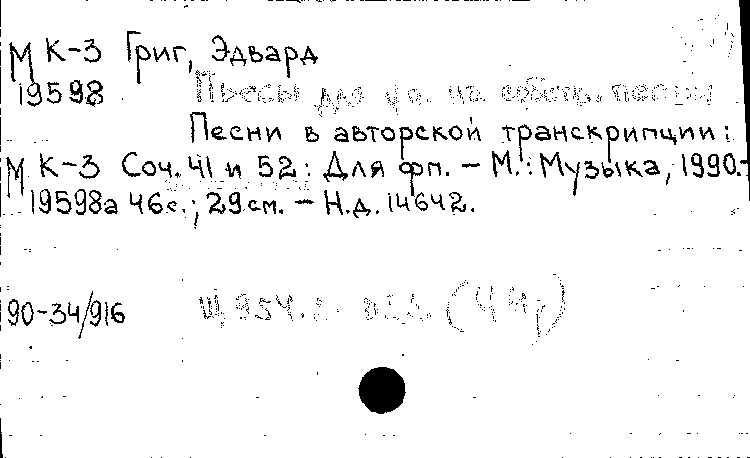 М К-3 Григ, Эдвард
19598 Пьесы для на собств. песни
Песни в авторской транскрипции:
М К-3 Соч. 41 и 52: Для фп. – М.: Музыка, 1990.-
19598а 46с.; 29см. – Н.д. 14642.
90-34/916 Щ954.